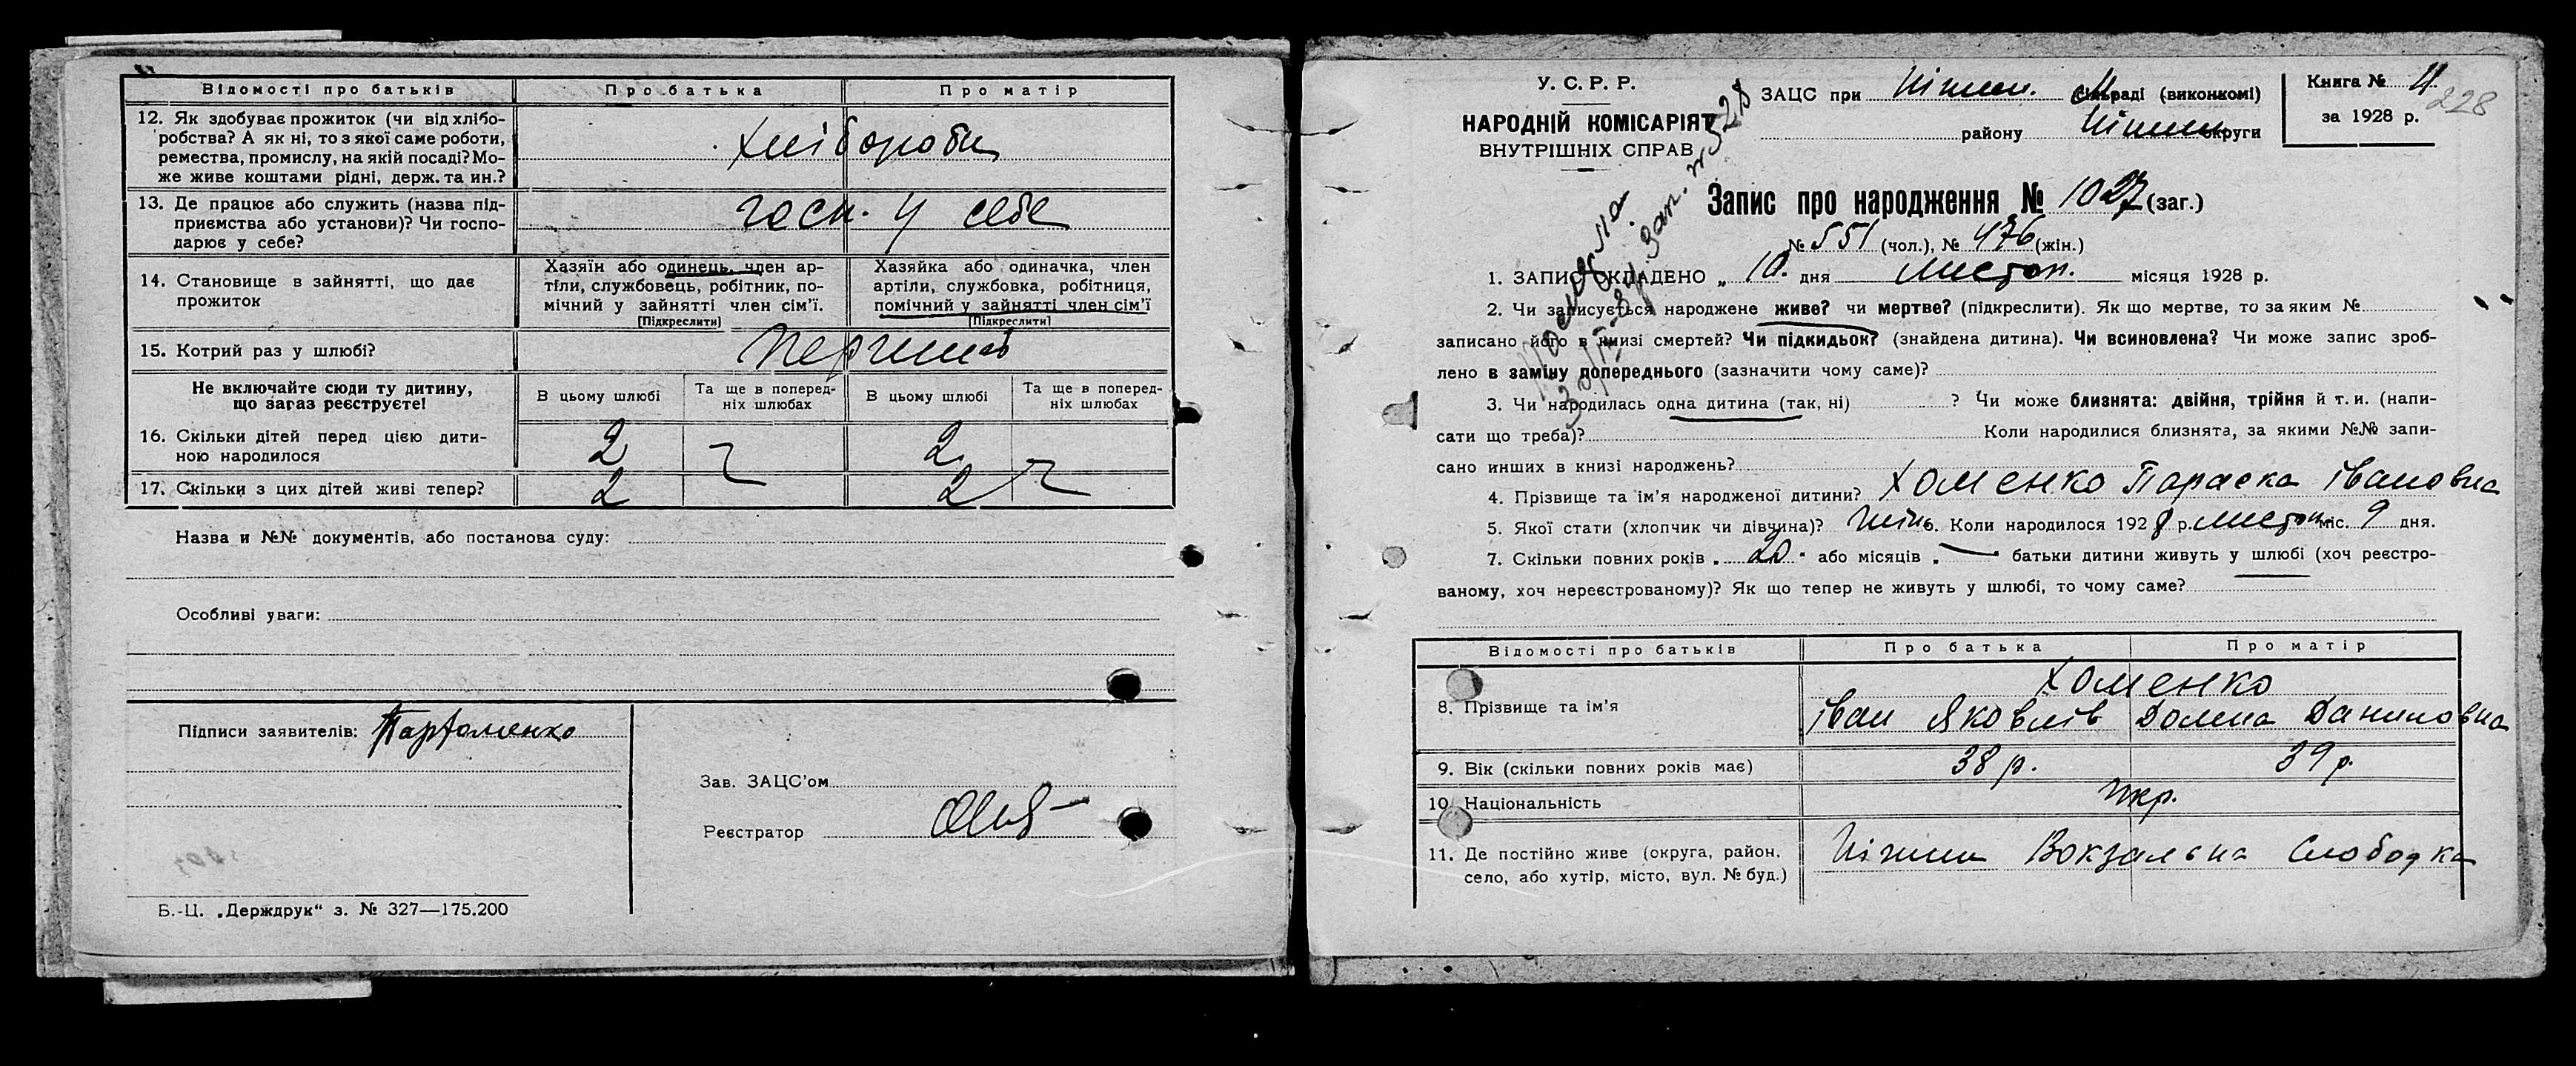 Відомості про батьків Про батька Про матір
12. Як здобуває прожиток (чи від хлібо-
робства? А як ні, то з якої саме роботи,
ремества, промислу, на якій посаді? Мо-
же живе коштами рідні, держ. та ин.?
хлібороби
13. Де працює або служить (назва під-
приємства або установи)? Чи госпо-
дарює у себе?
госп. у себе
14. Становище в зайнятті, що дає
прожиток
Хазяїн або одинець, член ар-
тіли, службовець, робітник, по-
мічний у зайнятті член сім’ї.
[Підкреслити]
Хазяйка або одиначка, член
артіли, службовка, робітниця,
помічний у зайнятті член сім’ї
[Підкреслити]
15. Котрий раз у шлюбі?
Не включайте сюди ту дитину,
що загаз реєструєте!
В цьому шлюбі
Та ще в поперед-
ніх шлюбах
В цьому шлюбі
Та ще в поперед-
ніх шлюбах
16. Скільки дітей перед цією дити-
ною народилося
2 2
17. Скільки з цих дітей живі тепер?
2 2
Назва и №№ документів, або постанова суду:
Особливі уваги:
Підписи заявителів: Пархоменко
Зав. ЗАЦС’ом
Реєстратор
Б.-Ц. „Держдрук“ з. № 327—175.200
У. С. Р. Р.
НАРОДНІЙ КОМІСАРІЯТ
ВНУТРІШНІХ СПРАВ
ЗАЦС при Ніжин. М раді (виконкомі)
району Ніжин округи
Книга № 4
228
за 1928 р.
Запис про народження № 1027 (заг.)
№ 551 (чол.), № 476 (жін.)
1. ЗАПИС СКЛАДЕНО „ 10. дня листоп. місяця 1928 р.
2. Чи записується народжене живе? чи мертве? (підкреслити). Як що мертве, то за яким №
записано його в книзі смертей? Чи підкидьок? (знайдена дитина). Чи всиновлена? Чи може запис зроб-
лено в заміну попереднього (зазначити чому саме)?
3. Чи народилась одна дитина (так, ні) ? Чи може близнята: двійня, трійня й т. и. (напи-
сати що треба)? Коли народилися близнята, за якими №№ запи-
сано инших в книзі народжень?
4. Прізвище та ім’я народженої дитини? Хоменко Параска Івановна
5. Якої стати (хлопчик чи дівчина)? жін. Коли народилося 1928 р. листоп міс. 9 дня.
7. Скільки повних років „ 20 “ або місяців „ — “ батьки дитини живуть у шлюбі (хоч реєстро-
ваному, хоч нереєстрованому)? Як що тепер не живуть у шлюбі, то чому саме?
Відомості про батьків Про батька Про матір
8. Прізвище та ім’я
Хоменко
Іван Яковлів Домна Даниловна
9. Вік (скільки повних років має) 38 р. 39 р.
10. Національність Укр.
11. Де постійно живе (округа, район,
село, або хутір, місто, вул. № буд.)
Ніжин Вокзальна Слободка